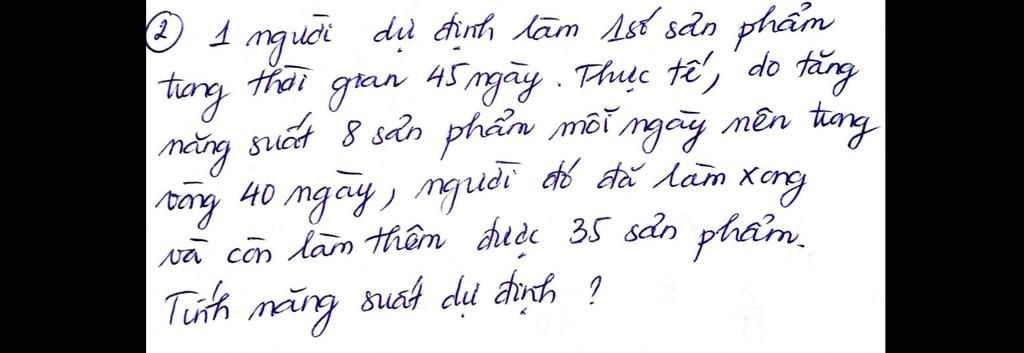 ② 1 người dự định làm 1 số sản phẩm
trong thời gian 45 ngày. Thực tế, do tăng
năng suất 8 sản phẩm mỗi ngày nên trong
vòng 40 ngày, người đó đã làm xong
và còn làm thêm được 35 sản phẩm.
Tính năng suất dự định ?